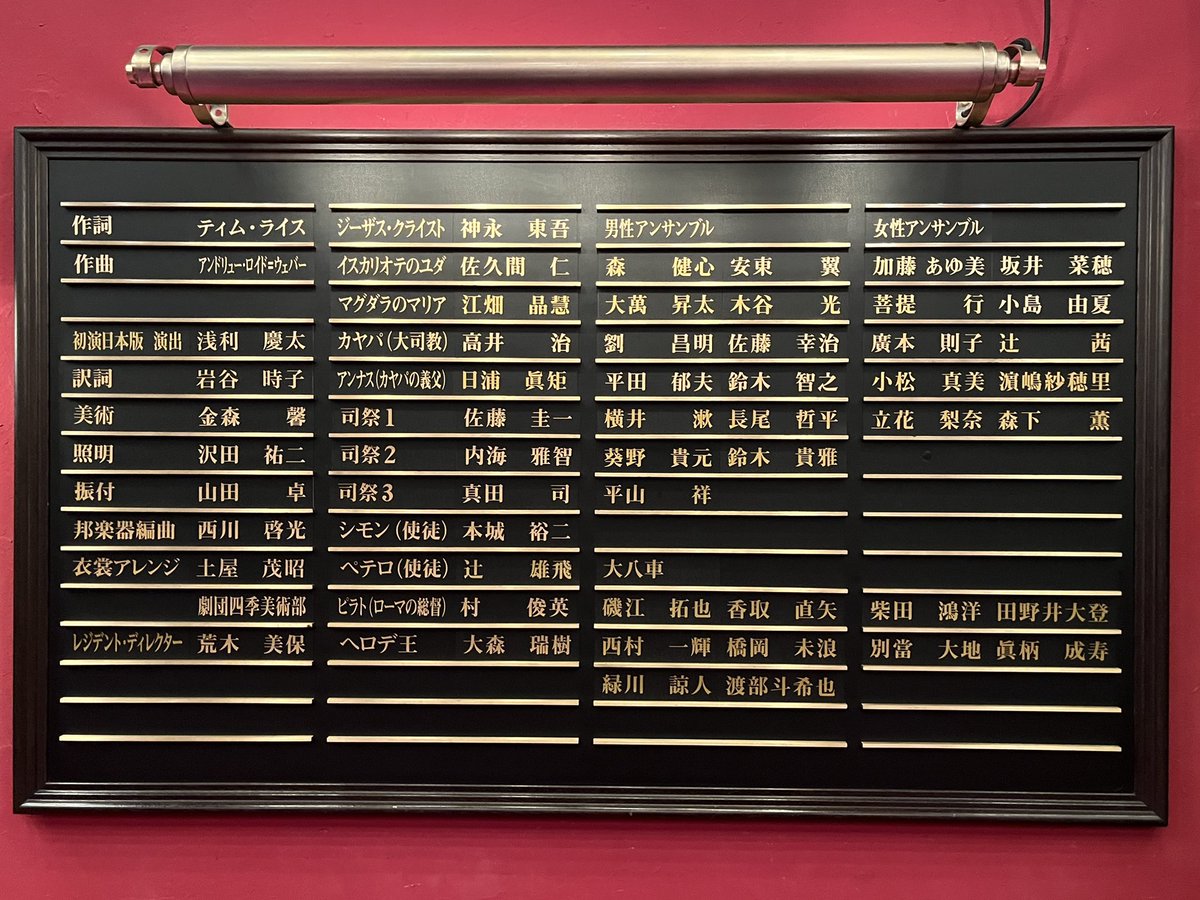 作詞 ティム・ライス
作曲 アンドリュー・ロイド=ウェバー
初演日本版 演出 浅利 慶太
訳詞 岩谷 時子
美術 金森 馨
照明 沢田 祐二
振付 山田 卓
邦楽器編曲 西川 啓光
衣裳アレンジ 土屋 茂昭
劇団四季美術部
レジデント・ディレクター 荒木 美保
ジーザス・クライスト 神永 東吾
イスカリオテのユダ 佐久間 仁
マグダラのマリア 江畑 晶慧
カヤパ(大司教) 高井 治
アンナス(カヤパの義父) 日浦 眞矩
司祭1 佐藤 圭一
司祭2 内海 雅智
司祭3 真田 司
シモン(使徒) 本城 裕二
ペテロ(使徒) 辻 雄飛
ピラト(ローマの総督) 村 俊英
ヘロデ王 大森 瑞樹
男性アンサンブル
森 健心 安東 翼
大萬 昇太 木谷 光
劉 昌明 佐藤 幸治
平田 郁夫 鈴木 智之
横井 漱 長尾 哲平
葵野 貴元 鈴木 貴雅
平山 祥
大八車
磯江 拓也 香取 直矢
西村 一輝 橋岡 未浪
緑川 諒人 渡部斗希也
女性アンサンブル
加藤 あゆ美 坂井 菜穂
菩提 行 小島 由夏
廣本 則子 辻 茜
小松 真美 濵嶋紗穂里
立花 梨奈 森下 薫
柴田 鴻洋 田野井大登
別當 大地 眞柄 成寿